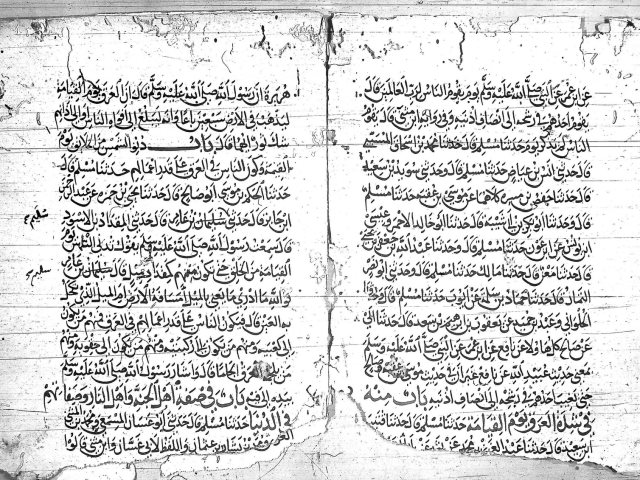 عن ابن عمر عن النبي صلى الله عليه وسلم يوم يقوم الناس لرب العالمين قال
يقوم احدهم في رشحه الى انصاف اذنيه وفي رواية ابن مثنى قال يقوم
الناس لم يذكر يوم وحدثنا مسلم قال حدثنا محمد بن اسحاق المسيبي
قال حدثني انس بن عياض حدثنا مسلم قال وحدثني سويد بن سعيد
قال حدثنا حفص بن ميسرة كلاهما عن موسى بن عقبة حدثنا مسلم
قال وحدثنا ابو بكر بن ابي شيبة قال حدثنا ابو خالد الاحمر وعيسى
ابن يونس عن ابن عون حدثنا مسلم قال وحدثنا عبد الله بن جعفر بن يحيى
قال حدثنا معن قال حدثنا مالك حدثنا مسلم قال وحدثني ابو نصر
التمار قال حدثنا حماد بن سلمة عن ايوب حدثنا مسلم قال وحدثنا
الحلواني وعبد بن حميد عن يعقوب بن ابرهيم بن سعد قال حدثنا ابي
عن صالح كل هاولاء عن نافع عن ابن عمر عن النبي صلى الله عليه وسلم
بمعنى حديث عبيد الله عن نافع غير ان في حديث موسى بن عقبة وصالح
حتى يغيب احدهم في رشحه الى انصاف اذنيه باب منه
في شدة العرق يوم القيامة حدثنا مسلم قال حدثنا قتيبة
ابن سعيد قال حدثنا عبد العزيز يعني ابن محمد عن
هريرة ان رسول الله صلى الله عليه وسلم قال ان العرق يوم القيامة
ليذهب في الارض سبعين باعا وانه ليبلغ الى افواه الناس او الى اذانهم
شك ثور ايهما قال باب دنو الشمس من الخلائق يوم
القيامة وكون الناس في العرق على قدر اعمالهم حدثنا مسلم قال
حدثنا الحكم بن موسى ابو صالح قال حدثنا يحيى بن حمزة عن عبد الرحمن
ابن جابر قال حدثني سليمان بن عامر قال حدثني المقداد بن الاسود
قال سمعت رسول الله صلى الله عليه وسلم يقول تدنى الشمس يوم
القيامة من الخلق حتى تكون منهم كمقدار ميل قال سليمان بن عامر
والله ما ادري ما يعني بالميل امسافة الارض ام الميل الذي تكحل
به العين قال فيكون الناس على قدر اعمالهم في العرق فمنهم من يكون
الى كعبيه ومنهم من يكون الى ركبتيه ومنهم من يكون الى حقويه ومنهم
من يلجمه العرق الجاما قال واشار رسول الله صلى الله عليه وسلم
بيده الى فيه باب في صفة اهل الجنة واهل النار وصفاتهم
في الدنيا حدثنا مسلم قال حدثني ابو غسان المسمعي ومحمد بن
بن بشار بن عثمان واللفظ لابي غسان وابن مثنى قالوا
سليم
سليم